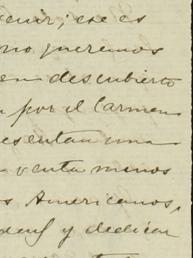 venir; ese es
no queremos
en descubierto
por el Carmen
esentan una
venta menos
os Americanos,
y dedicar